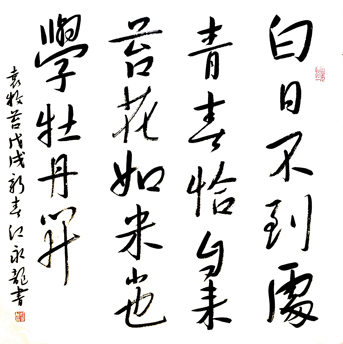 白日不到處
青春恰自来
苔花如米也
學牡丹開
袁枚苔戊戌新春江永龍書